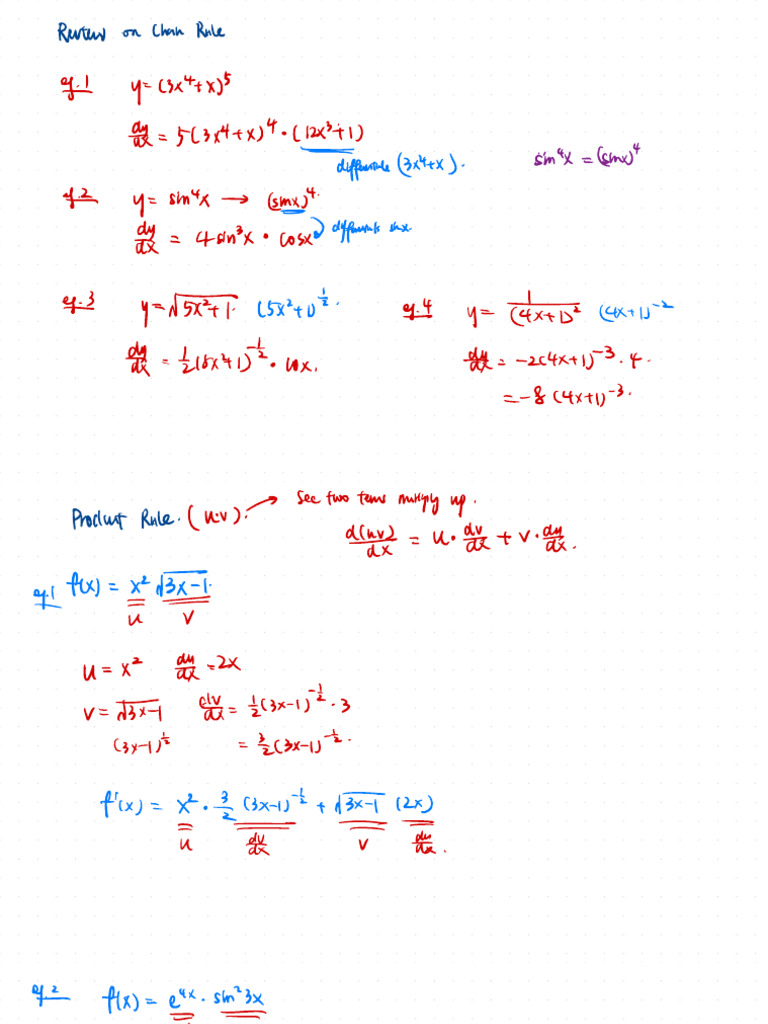 Review on Chain Rule
eg.1 y = (3x⁴+x)⁵
dy/dx = 5(3x⁴+x)⁴ · (12x³+1)
differentiate (3x⁴+x).
sin⁴x = (sinx)⁴
eg.2 y = sin⁴x → (sinx)⁴.
dy/dx = 4 sin³x · cosx
differentiate sinx.
eg.3 y = √(5x²+1). (5x²+1)^(1/2).
dy/dx = 1/2(5x²+1)^(-1/2) · 10x.
eg.4 y = 1/(4x+1)² (4x+1)⁻²
dy/dx = -2(4x+1)⁻³ · 4
= -8 (4x+1)⁻³.
Product Rule. (u·v). → See two terms multiply up.
d(uv)/dx = u · dv/dx + v · du/dx.
eg.1 f(x) = x² √(3x-1).
u v
u = x² du/dx = 2x
v = √(3x-1) dv/dx = 1/2(3x-1)^(-1/2) · 3
(3x-1)^(1/2) = 3/2(3x-1)^(-1/2).
f'(x) = x² · 3/2 (3x-1)^(-1/2) + √(3x-1) (2x)
u dv/dx v du/dx.
eg.2 f(x) = e^(4x) · sin²3x